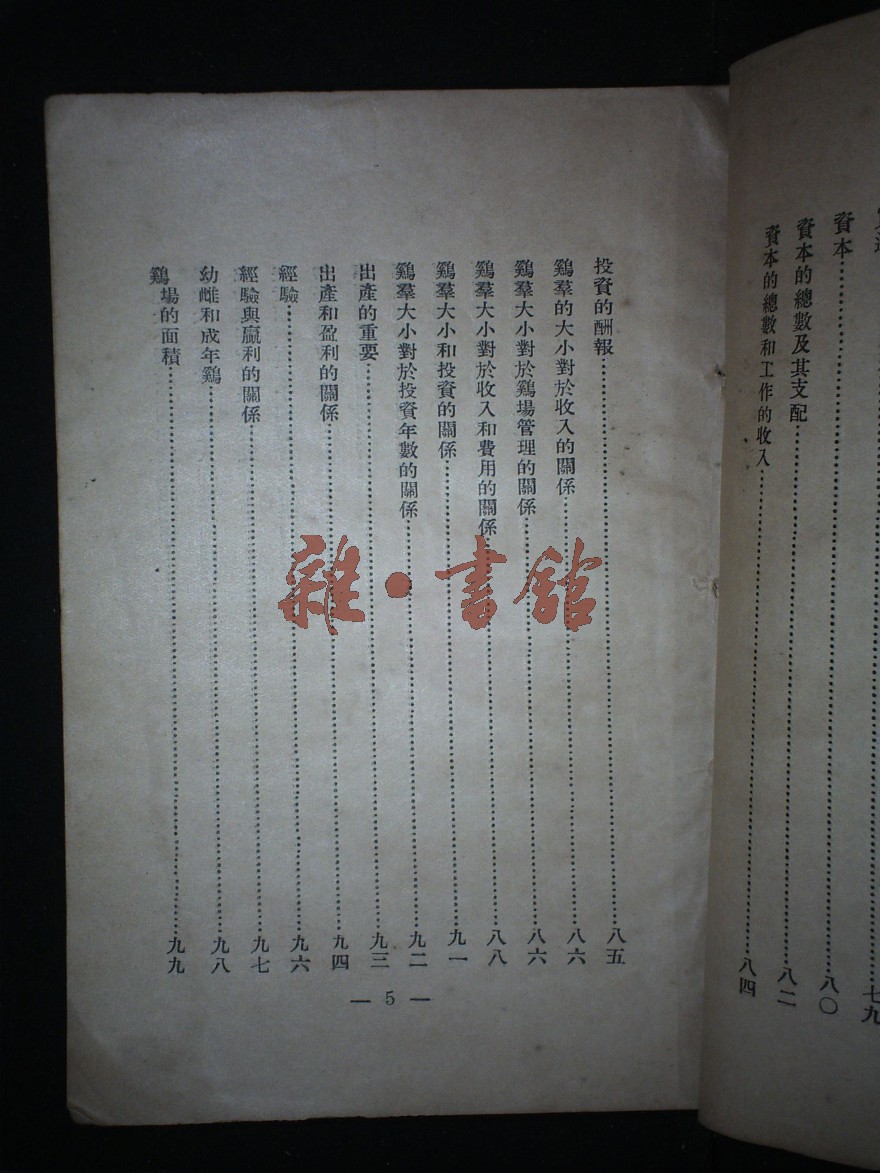 資本……七九
資本的總數及其支配……八〇
資本的總數和工作的收入……八二
八四
投資的酬報……八五
鷄羣的大小對於收入的關係……八六
鷄羣大小對於鷄場管理的關係……八六
鷄羣大小對於收入和費用的關係……八八
鷄羣大小和投資的關係……九一
鷄羣大小對於投資年數的關係……九二
出產的重要……九三
出產和盈利的關係……九四
經驗……九六
經驗與贏利的關係……九七
幼雌和成年鷄……九八
鷄場的面積……九九
— 5 —
雜·書館